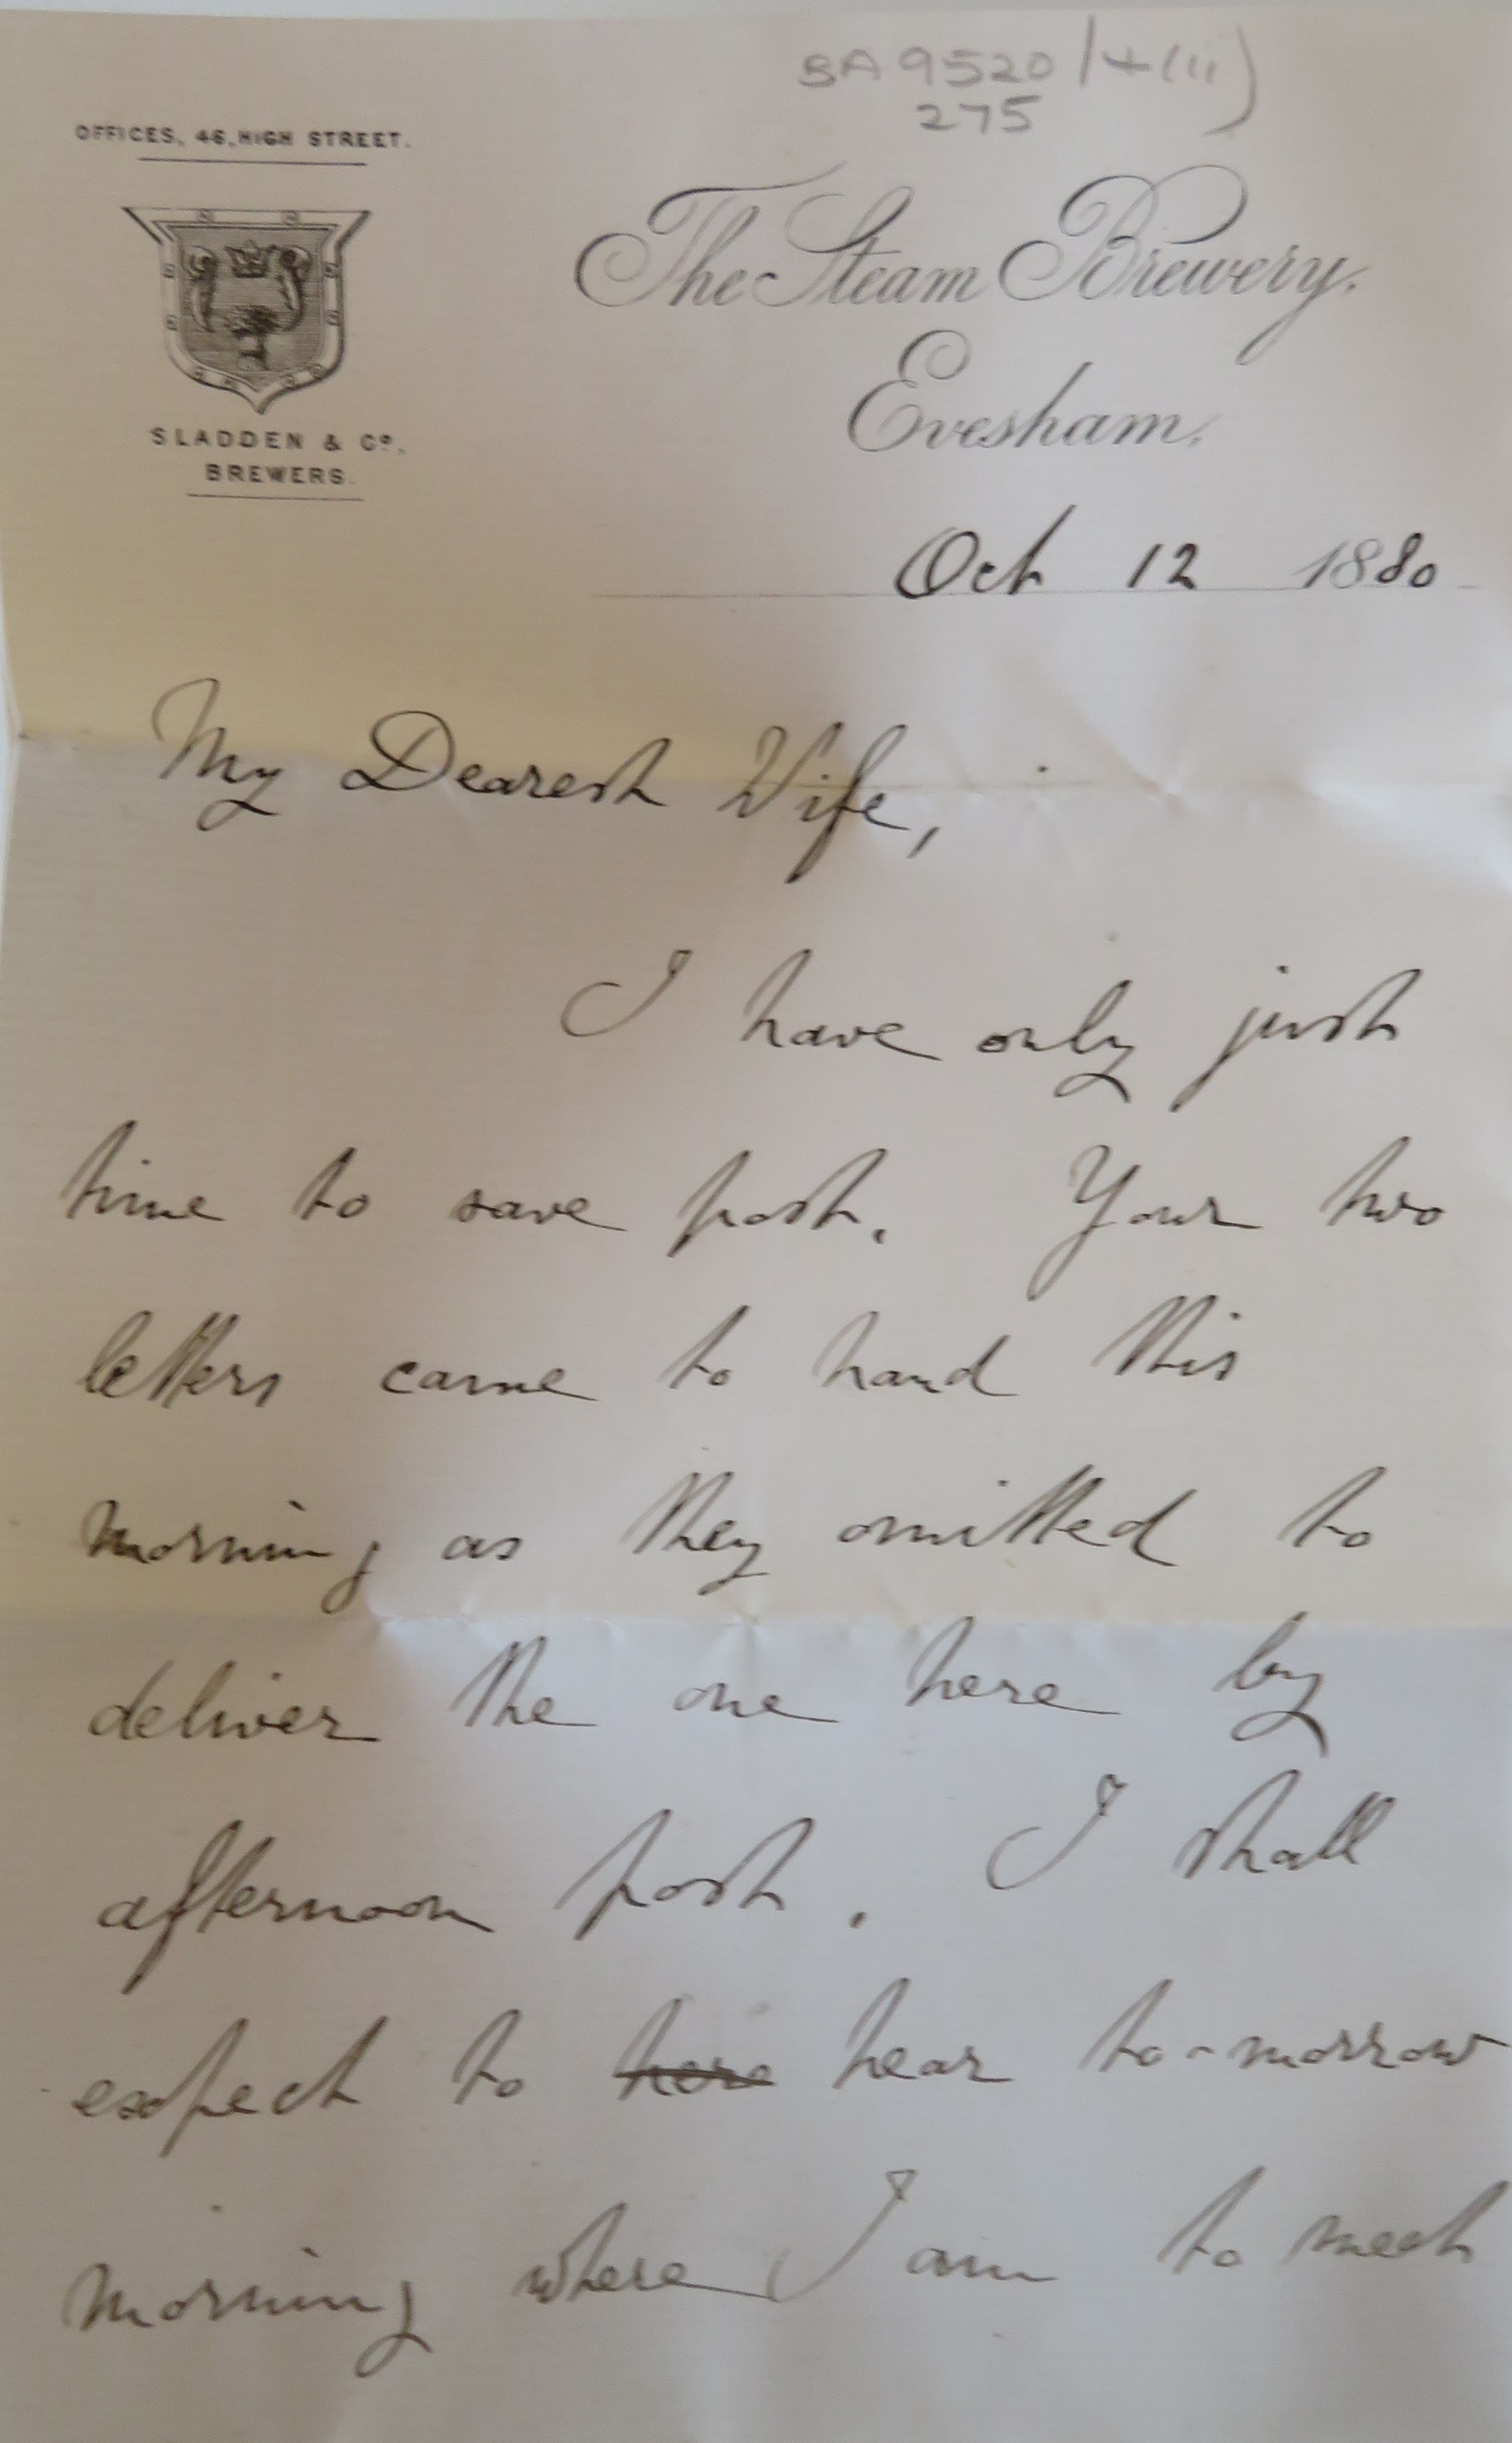 BA 9520/4(ii)
275
OFFICES, 46, HIGH STREET.
The Steam Brewery,
Evesham,
SLADDEN & Co.,
BREWERS.
Oct 12 1880
My Dearest Wife,
I have only just
time to save post. Your two
letters came to hand this
morning as they omitted to
deliver the one here by
afternoon post. I shall
expect to here hear to-morrow
morning where I am to meet